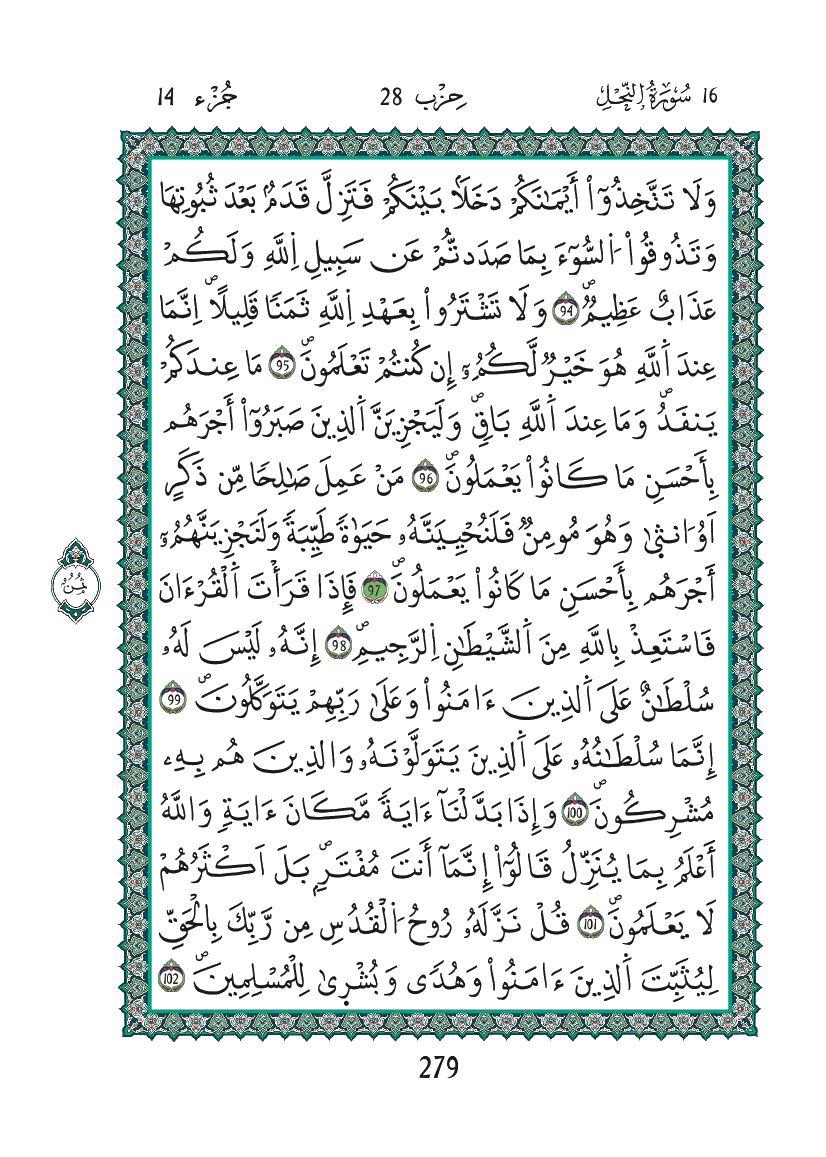 16 سُورَةُ اُ۬لنَّحْلِ حِزْب 28 جُزْء 14
وَلَا تَتَّخِذُوٓاْ أَيْمَٰنَكُمْ دَخَلاَۢ بَيْنَكُمْ فَتَزِلَّ قَدَمُۢ بَعْدَ ثُبُوتِهَا
وَتَذُوقُواْ اُ۬لسُّوٓءَ بِمَا صَدَدتُّمْ عَن سَبِيلِ اِ۬للَّهِ وَلَكُمْ
عَذَابٌ عَظِيمٞۖ 94 وَلَا تَشْتَرُواْ بِعَهْدِ اِ۬للَّهِ ثَمَنٗا قَلِيلًاۖ اِنَّمَا
عِندَ اَ۬للَّهِ هُوَ خَيْرٞ لَّكُمُۥٓ إِن كُنتُمْ تَعْلَمُونَۖ 95 مَا عِندَكُمْ
يَنفَدُۖ وَمَا عِندَ اَ۬للَّهِ بَاقٖۖ وَلَيَجْزِيَنَّ اَ۬لذِينَ صَبَرُوٓاْ أَجْرَهُم
بِأَحْسَنِ مَا كَانُواْ يَعْمَلُونَۖ 96 مَنْ عَمِلَ صَٰلِحٗا مِّن ذَكَرٍ
اَوُ ا۟نث۪يٰ وَهُوَ مُومِنٞ فَلَنُحْيِيَنَّهُۥ حَيَوٰةٗ طَيِّبَةٗ وَلَنَجْزِيَنَّهُمُۥٓ
أَجْرَهُم بِأَحْسَنِ مَا كَانُواْ يَعْمَلُونَۖ 97 فَإِذَا قَرَأْتَ اَ۬لْقُرْءَانَ
فَاسْتَعِذْ بِاللَّهِ مِنَ اَ۬لشَّيْطَٰنِ اِ۬لرَّجِيمِۖ 98 إِنَّهُۥ لَيْسَ لَهُۥ
سُلْطَٰنٌ عَلَى اَ۬لذِينَ ءَامَنُواْ وَعَلَىٰ رَبِّهِمْ يَتَوَكَّلُونَۖ 99
إِنَّمَا سُلْطَٰنُهُۥ عَلَى اَ۬لذِينَ يَتَوَلَّوْنَهُۥ وَالذِينَ هُم بِهِۦ
مُشْرِكُونَۖ 100 وَإِذَا بَدَّلْنَآ ءَايَةٗ مَّكَانَ ءَايَةٖ وَاللَّهُ
أَعْلَمُ بِمَا يُنَزِّلُ قَالُوٓاْ إِنَّمَآ أَنتَ مُفْتَرِۢۖ بَلَ اَكْثَرُهُمْ
لَا يَعْلَمُونَۖ 101 قُلْ نَزَّلَهُۥ رُوحُ اُ۬لْقُدُسِ مِن رَّبِّكَ بِالْحَقِّ
لِيُثَبِّتَ اَ۬لذِينَ ءَامَنُواْ وَهُدٗى وَبُشْر۪يٰ لِلْمُسْلِمِينَۖ 102
ثُمُنُ
279